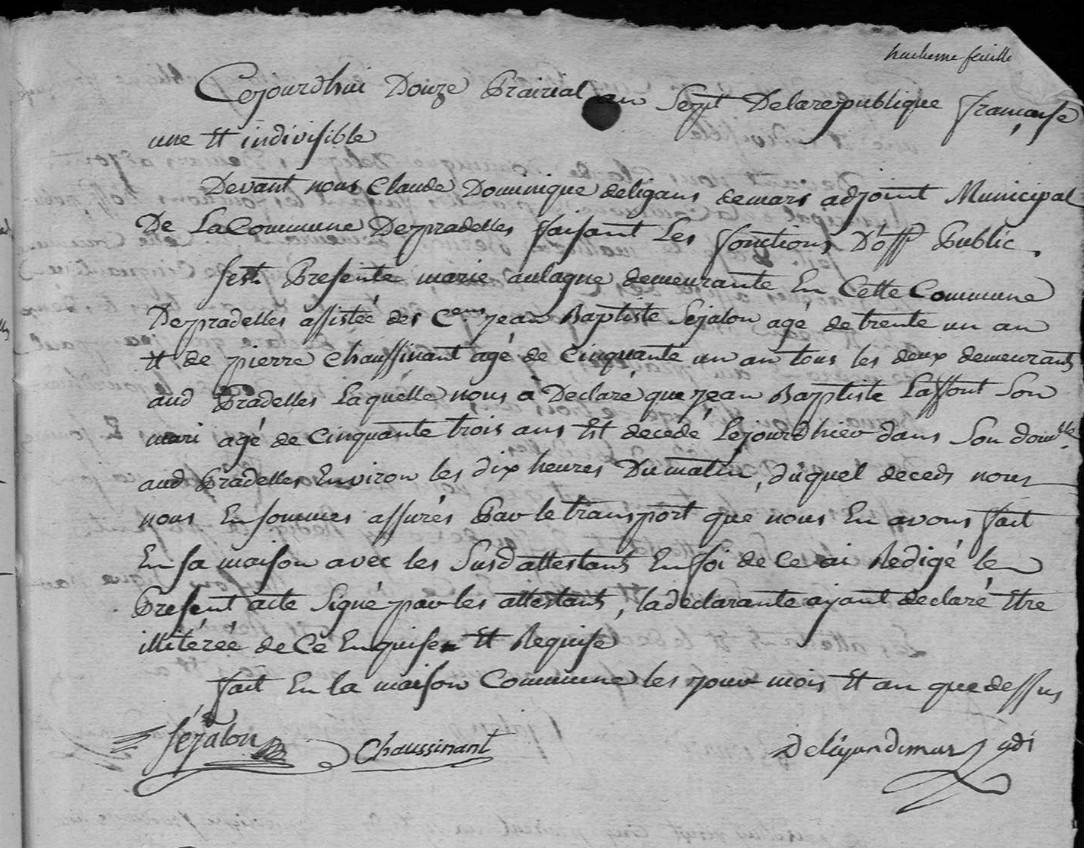 huitieme feuille
Cejourdhui Douze Prairial an Sept Delarepublique françaíse
une Et indivisible
Devant nous Claude Dominique deligans demars adjoint Municipal
De LaCommune Depradelles faisant Les fonctions D'off Public
sest Presente marie aulagne demeurante En Cette Commune
Depradelles assistée des Cens jean Baptiste Sejalon agé de trente un an
Et de pierre Chaussinant agé de cinquante un an tous les deux demeurants
aud Pradelles Laquelle nous a Declaré que jean Baptiste Laffont Son
mari agé de Cinquante trois ans Est decedé Lejourdhier dans Son domlle
aud Pradelles Environ les dix heures Dumatin, duquel deceds nous
nous En sommes assurés Par le transport que nous En avons fait
En sa maison avec les Susd attestants En foi de Ce ai Redigé le
Present acte Signé par les attestants, la declarante ayant declaré Etre
illitérée de Ce Enquise Et Requise
fait En la maison Commune les jour mois Et an que dessus
Sejalon Chaussinant Deligandemars adj